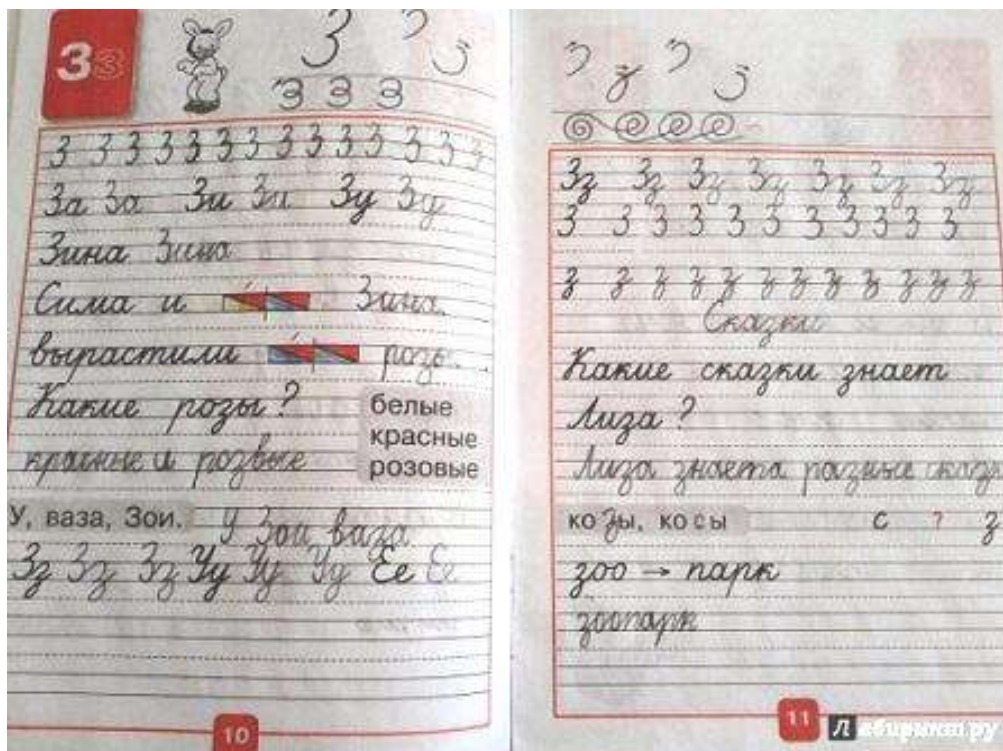 Зз
З
З З З
З З З З З З З З З З З З З З
За За Зи Зи Зу Зу
Зина Зина
Сима и Зина.
вырастили розы.
Какие розы?
белые
красные
розовые
красные и розвые
У, ваза, Зои. У Зои ваза
Зз Зз Зз Уу Уу Уу Ее Ее
10
з
Зз Зз Зз Зз Зз Зз Зз
З З З З З З З З З З З
з з з з з з з з з з з з
Сказки
Какие сказки знает
Лиза?
Лиза знаета разные сказ
козы, косы с ? з
зоо → парк
зоопарк
11
Лабиринт.ру